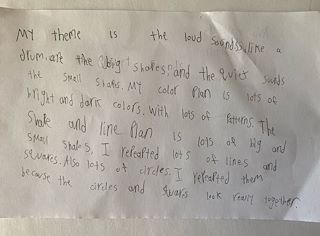 My theme is the loud sounds like a
drum are the bright shapes and the quiet sounds
the small shaps. My color Plan is lots of
bright and dark colors. With lots of Patterns. The
Shape and line Plan is lots of big and
small shapes. I repeated lots of lines and
squares. Also lots of circles. I repeated them
because the circles and squares look really together.